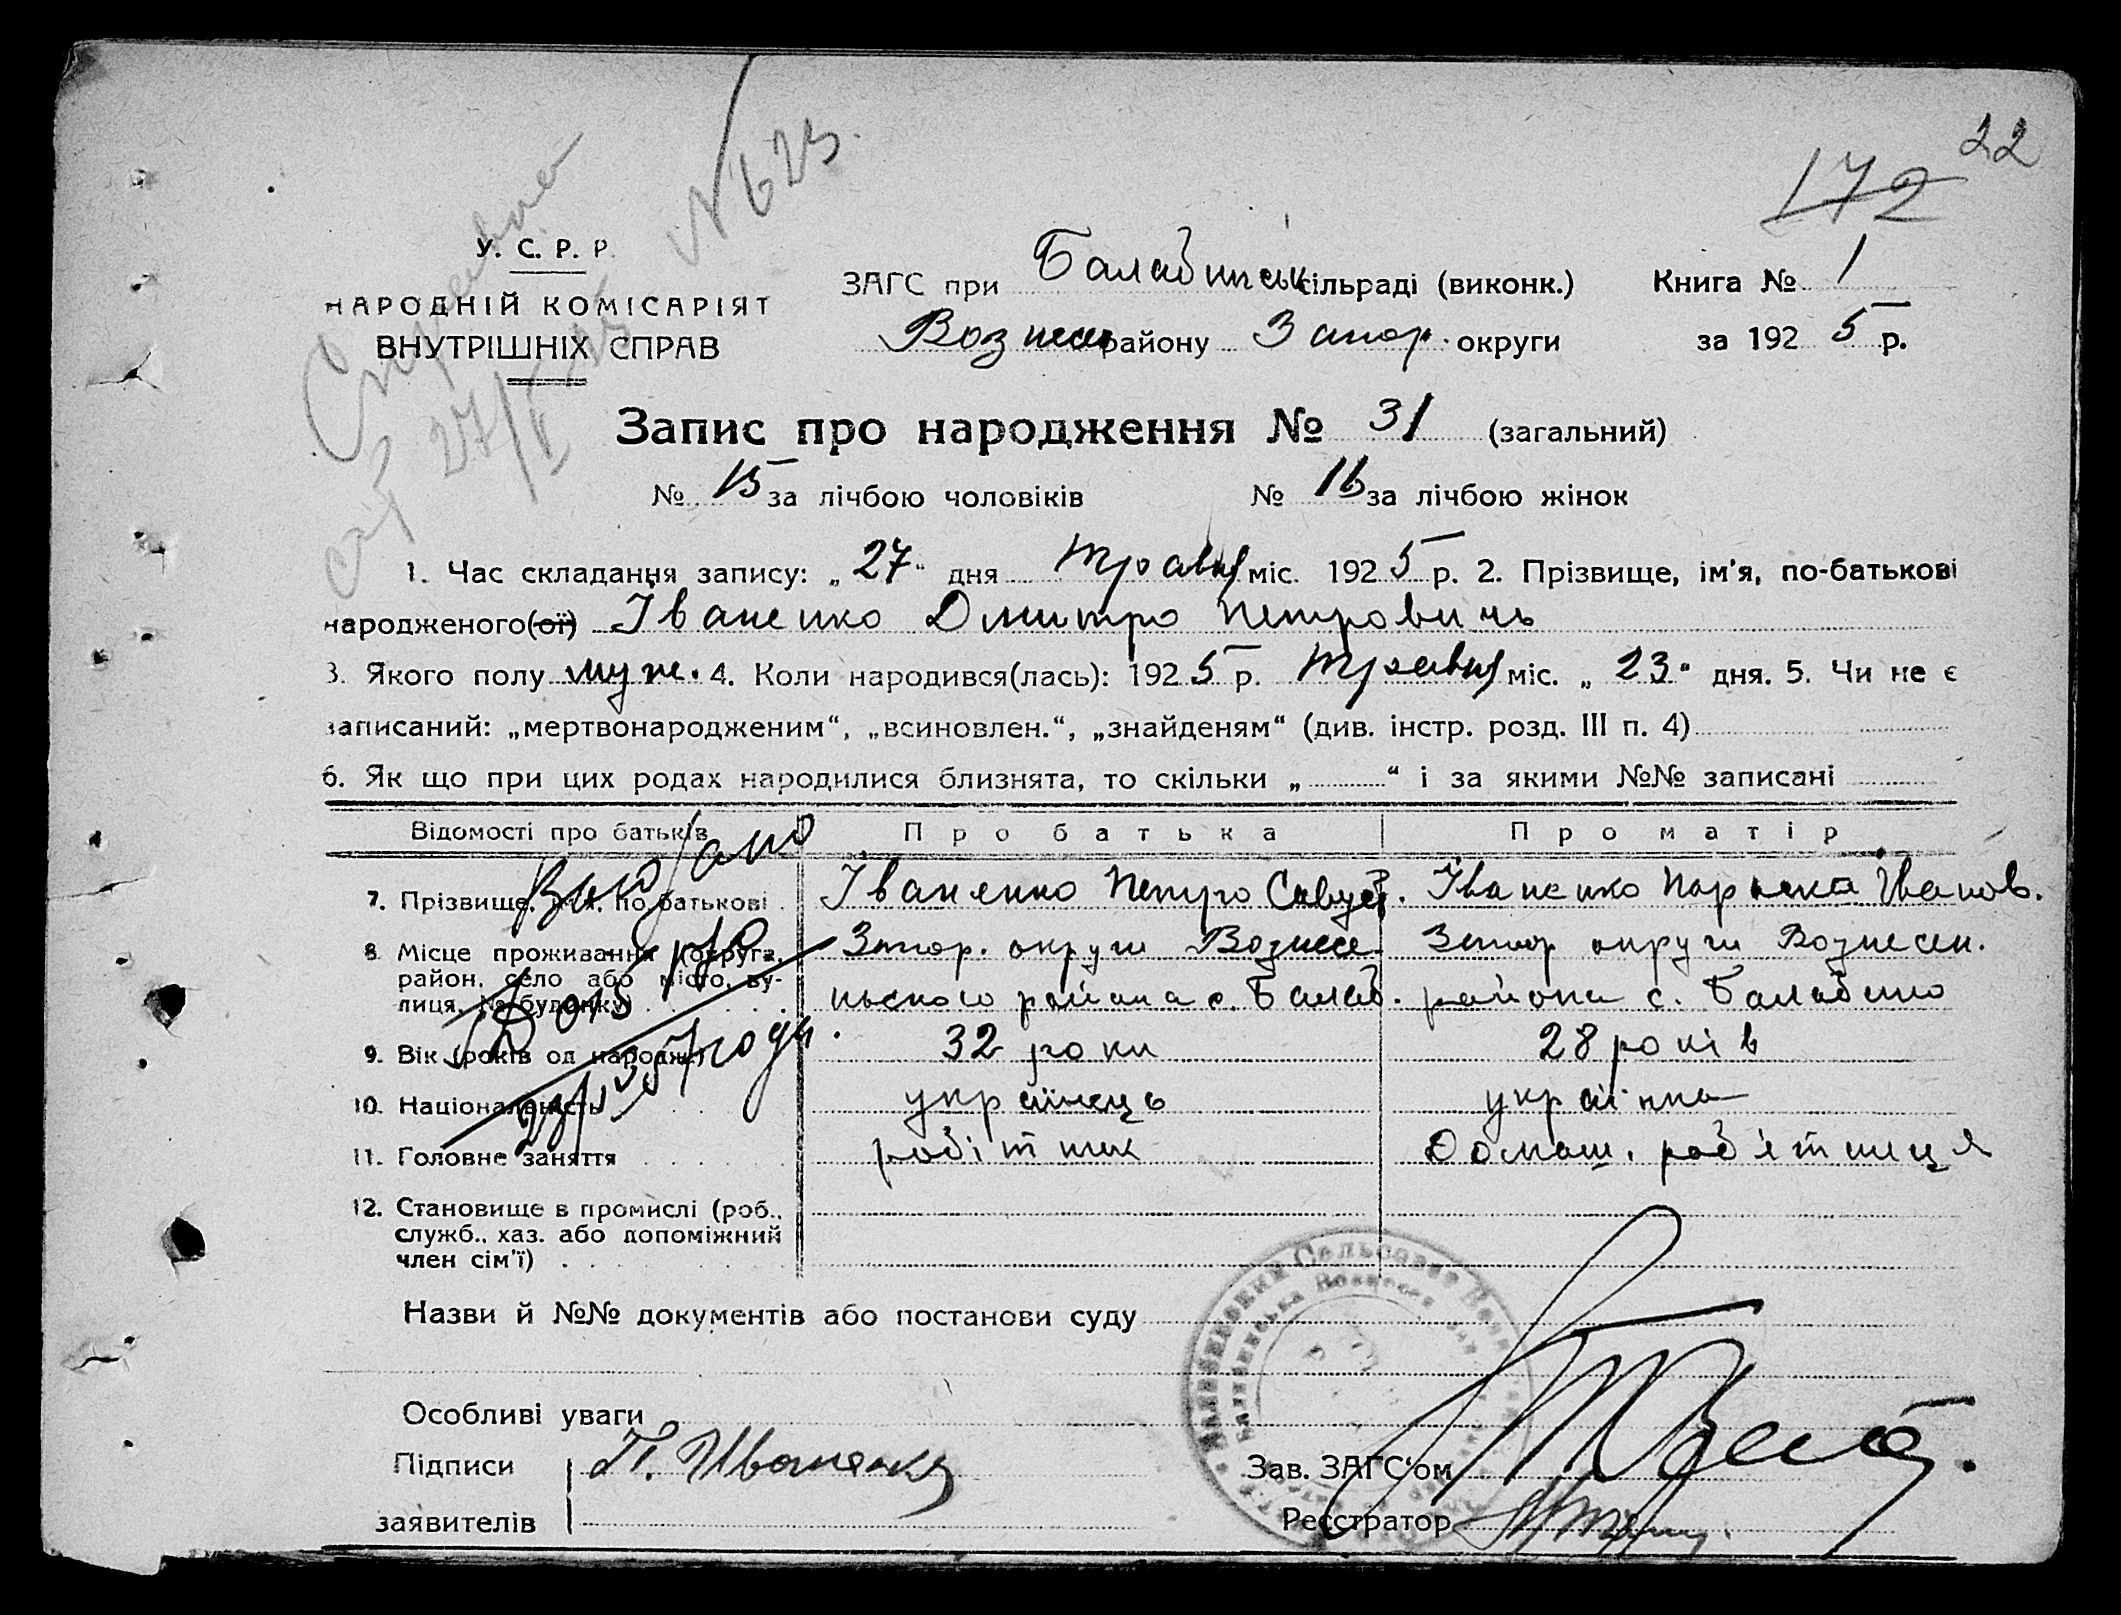 22
172
№ 623.
У. С. Р. Р.
НАРОДНІЙ КОМІСАРІЯТ
ВНУТРІШНІХ СПРАВ
ЗАГС при Балабинськ сільраді (виконк.) Книга № 1
Вознесен району Запор. округи за 1925 р.
Запис про народження № 31 (загальний)
№ 15 за лічбою чоловіків № 16 за лічбою жінок
1. Час складання запису: „27“ дня травня міс. 1925 р. 2. Прізвище, ім'я, по-батькові
народженого(ої) Іваненко Дмитро Петровичь
3. Якого полу муж. 4. Коли народився(лась): 1925 р. травня міс. „23“ дня. 5. Чи не є
записаний: „мертвонародженим“, „всиновлен.“, „знайденям“ (див. інстр. розд. III п. 4)
6. Як що при цих родах народилися близнята, то скільки „ “ і за якими №№ записані
Відомості про батьків Про батька Про матір
7. Прізвище, ім'я, по батькові Іваненко Петро Савует. Іваненко Параска Іванов.
8. Місце проживання (округа, Запор. округи Вознесе- Запор округи Вознесен.
район, село або місто, ву-
лиця, № будинку) нського района с. Балаб. района с. Балабино
9. Вік (років од народж.) 32 роки 28 років
10. Національність українець українка
11. Головне заняття робітник Домаш. робітниця
12. Становище в промислі (роб.,
служб., хаз. або допоміжний
член сім'ї)
Назви й №№ документів або постанови суду
Особливі уваги
Підписи П. Иваненко Зав. ЗАГС'ом
заявителів Реєстратор